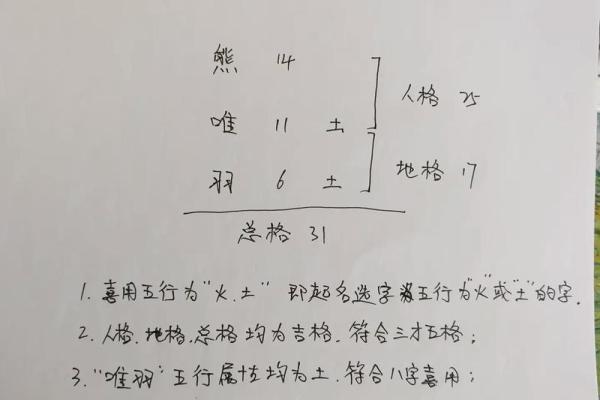 熊 14
人格 25
唯 11 土
地格 17
羽 6 土
总格 31
1. 喜用五行为“火、土” 即起名选字为五行为“火”或“土”的字.
2. 人格、地格、总格均为吉格, 符合三才五格;
3. “唯羽”五行属性均为土, 符合八字喜用;